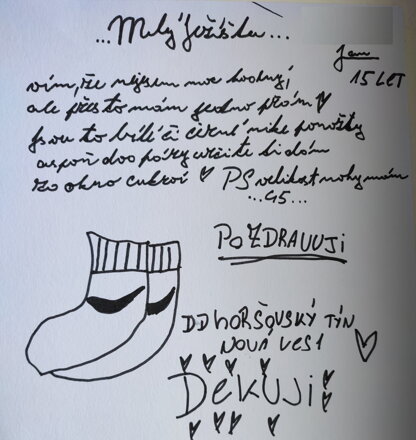 ...Milý Ježíšku...
Jan
15 LET
vím, že nejsem moc hodný,
ale přesto mám jedno přání
Jsou to bílé či černé nike ponožky
aspoň dva páry určitě ti dám
za okno cukroví PS velikost nohy mám
...45...
POZDRAVUJI
DD HORŠOVSKÝ TÝN
NOVÁ VES 1
DĚKUJI!